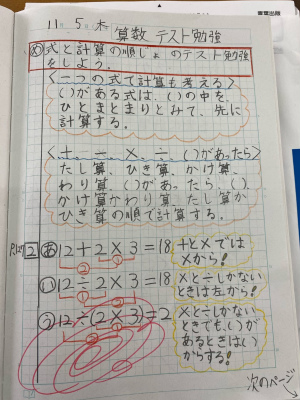 11 5 木 算数 テスト勉強
め 式と計算の順じょのテスト勉強
をしよう。
<一つの式で計算も考える>
( )がある式は、( )の中を、
ひとまとまりとみて、先に
計算する。
<+、−、×、÷、( )があったら>
たし算、ひき算、かけ算、
わり算、( )があったら、( )、
かけ算かわり算、たし算か
ひき算の順で計算する。
P.127 2 あ 12+2×3=18
② ①
+と×では
×から!
い 12÷2×3=18
① ②
×と÷しかない
ときは左から!
う 12÷(2×3)=2
② ①
×と÷しかない
ときでも、( )が
あるときは( )
からする!
次のページ